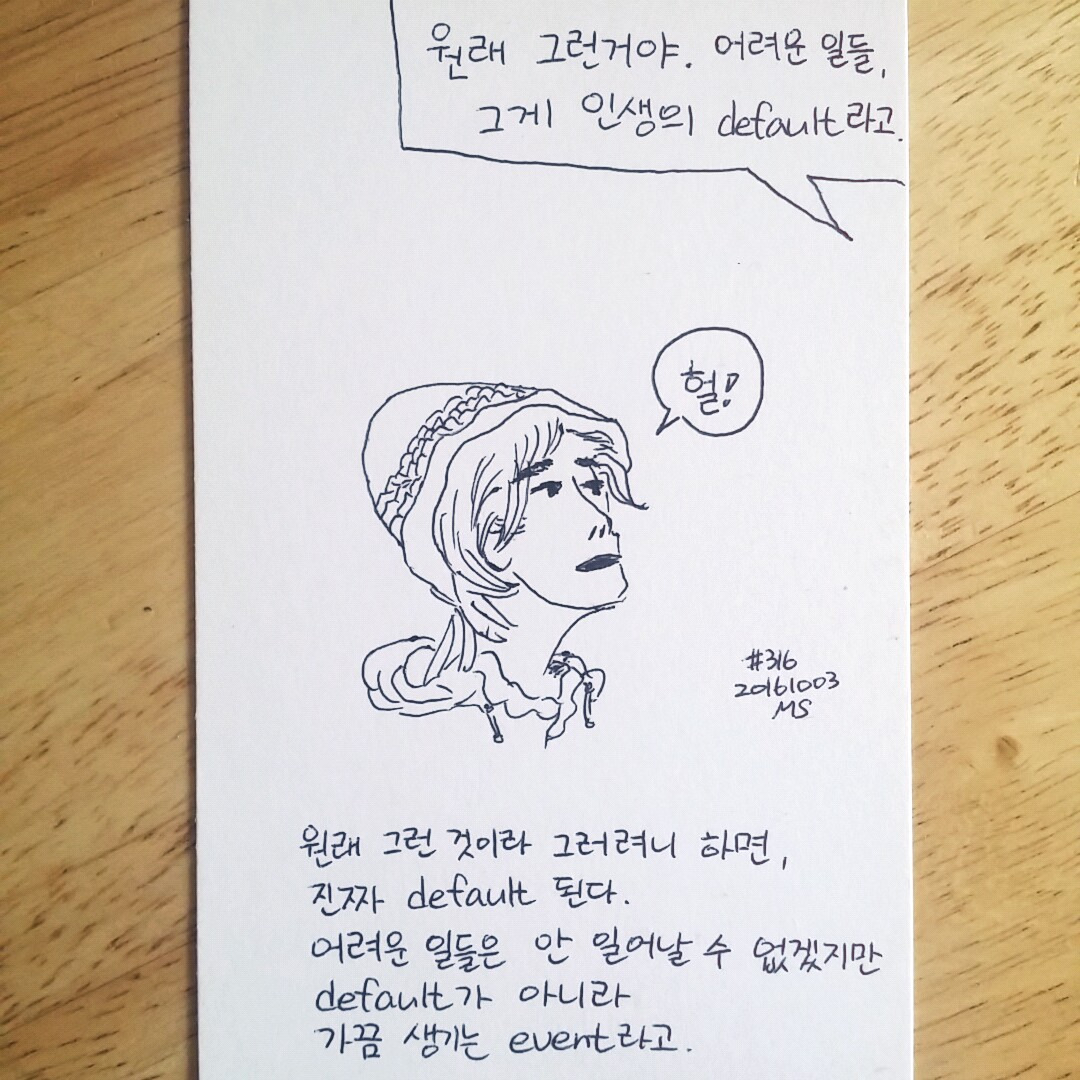 원래 그런거야. 어려운 일들,
그게 인생의 default라고.
헐!
#316
20161003
MS
원래 그런 것이라 그러려니 하면,
진짜 default 된다.
어려운 일들은 안 일어날 수 없겠지만
default가 아니라
가끔 생기는 event라고.